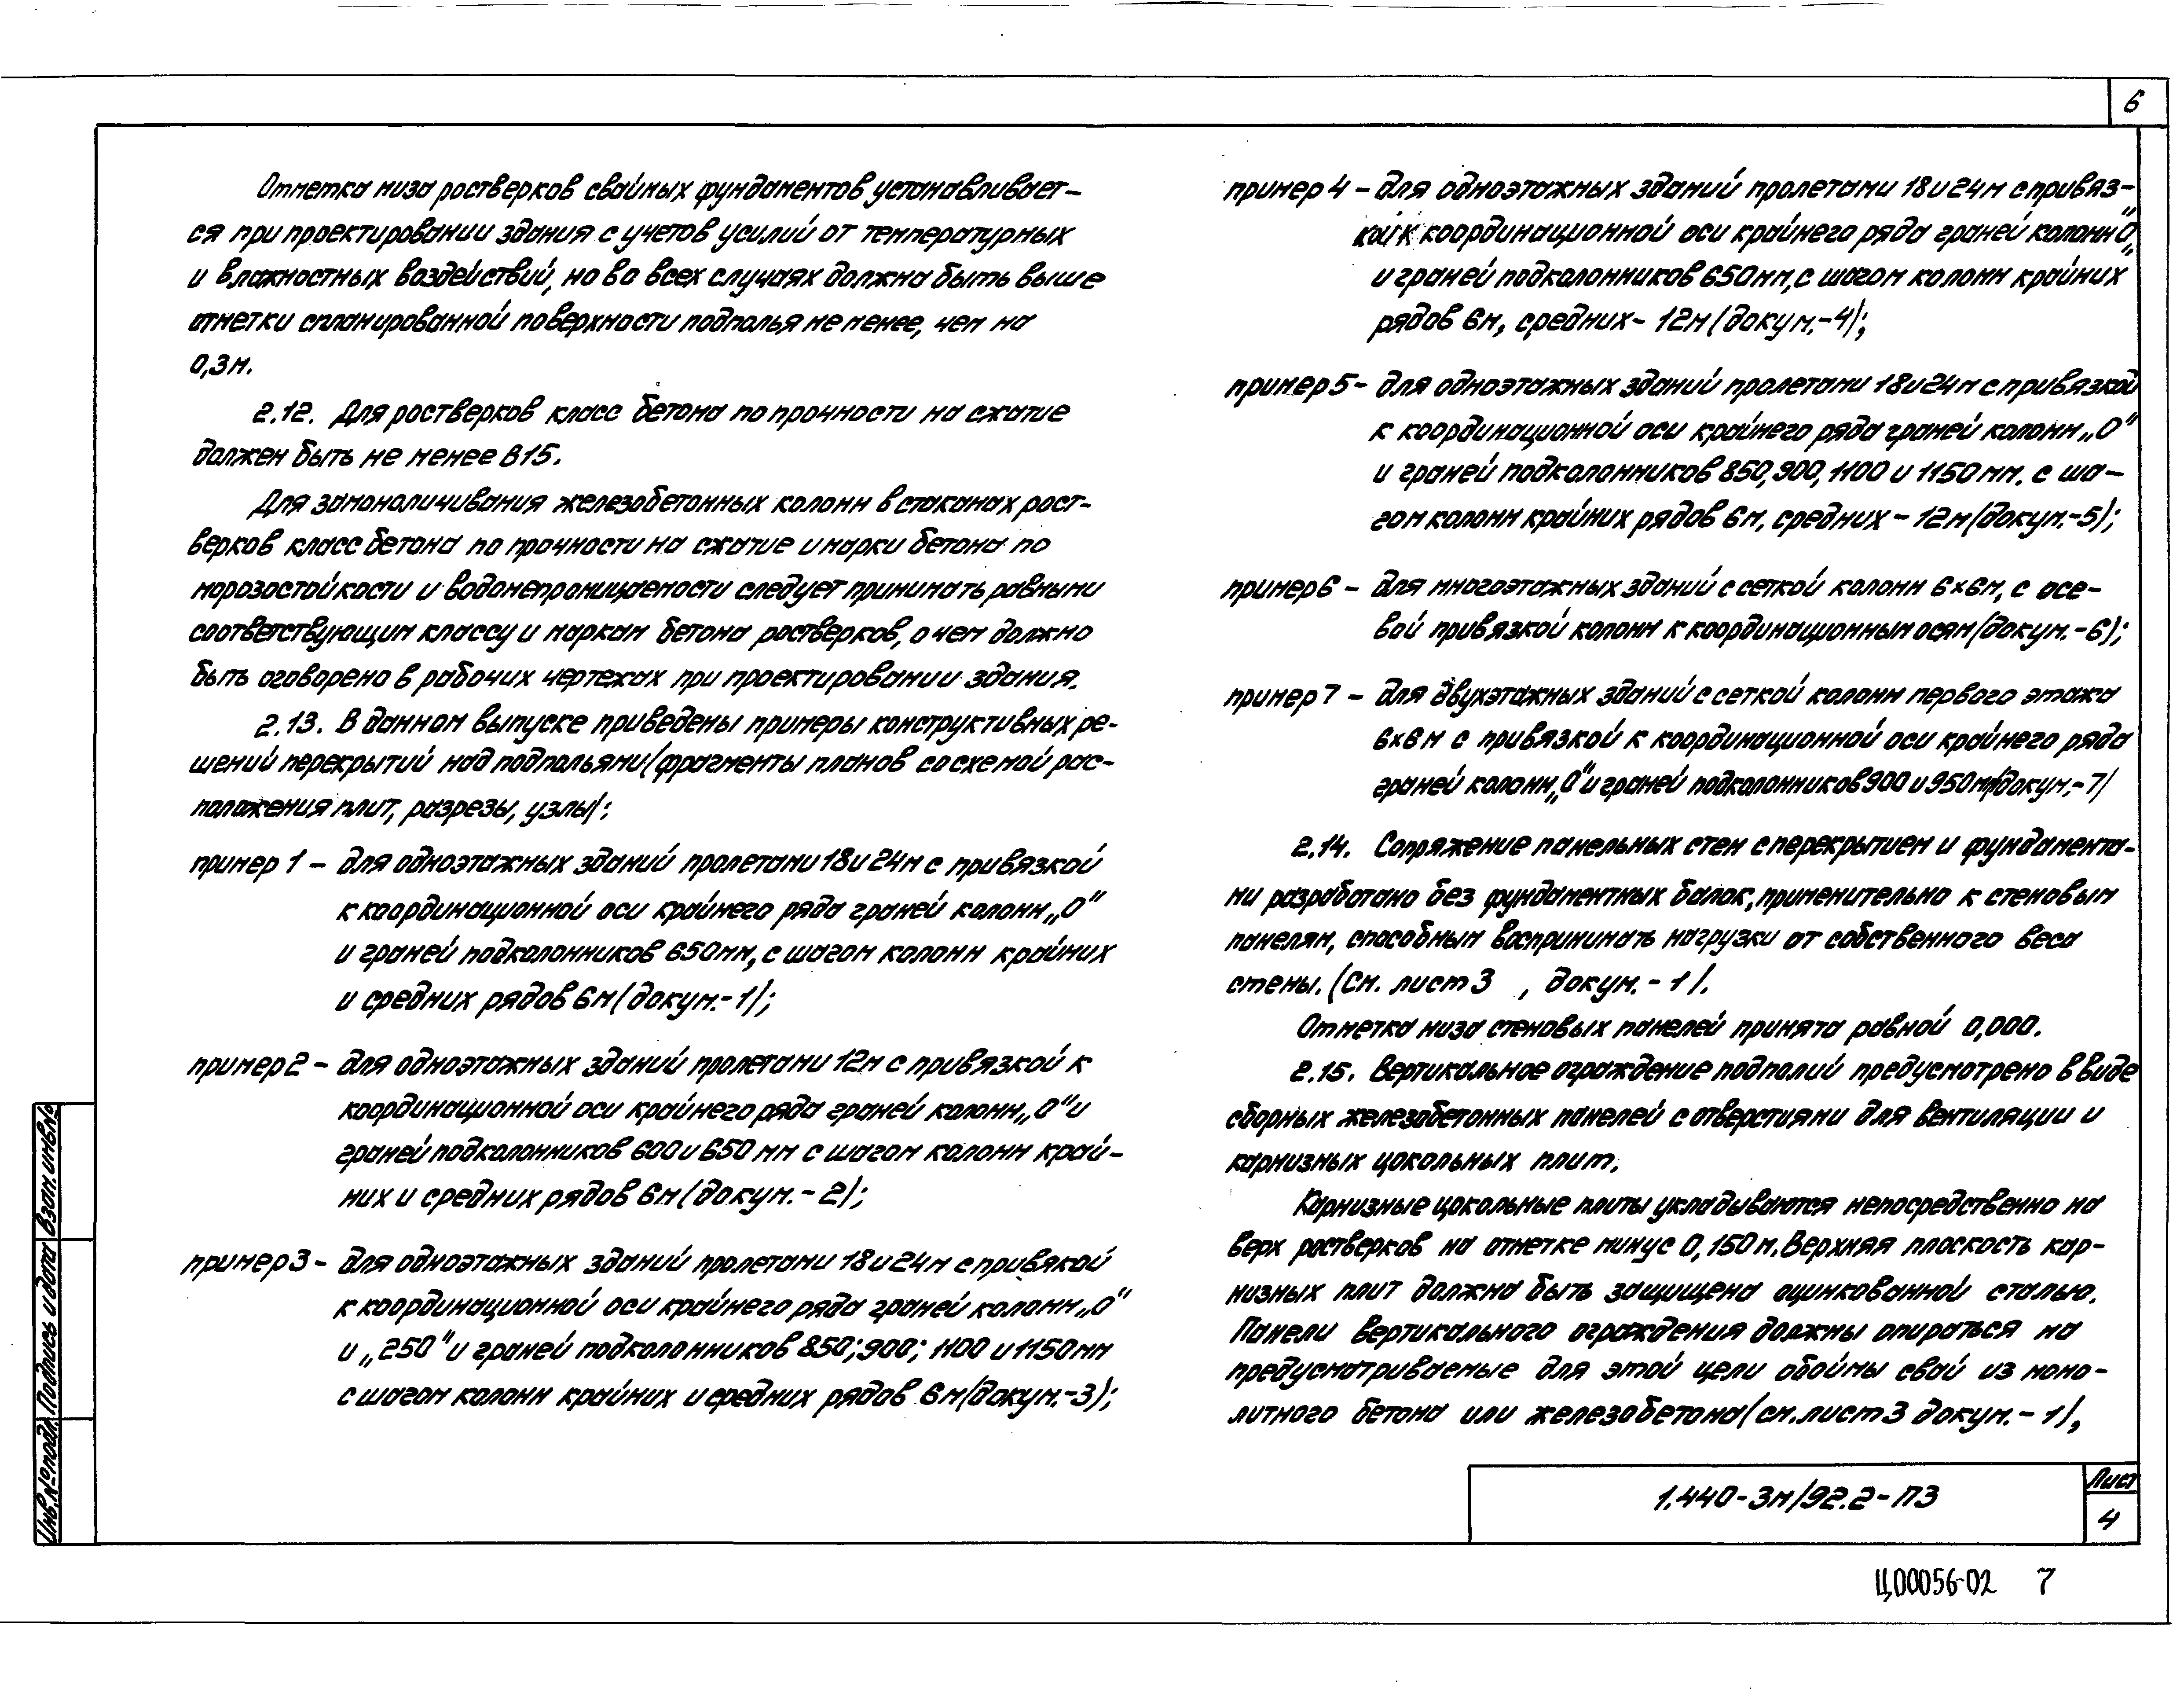 6
Отметка низа ростверков свайных фундаментов устанавливает-
ся при проектировании здания с учетов усилий от температурных
и влажностных воздействий, но во всех случаях должна быть выше
отметки спланированной поверхности подполья не менее, чем на
0,3м.
2.12. Для ростверков класс бетона по прочности на сжатие
должен быть не менее В15.
Для замоноличивания железобетонных колонн в стаканах рост-
верков класс бетона по прочности на сжатие и марки бетона по
морозостойкости и водонепроницаемости следует принимать равными
соответствующим классу и маркам бетона ростверков, о чем должно
быть оговорено в рабочих чертежах при проектировании здания.
2.13. В данном выпуске приведены примеры конструктивных ре-
шений перекрытий над подпольями (фрагменты планов со схемой рас-
положения плит, разрезы, узлы):
пример 1 – для одноэтажных зданий пролетами 18 и 24м с привязкой
к координационной оси крайнего ряда граней колонн „0"
и граней подколонников 650мм, с шагом колонн крайних
и средних рядов 6м (докум.-1);
пример 2 – для одноэтажных зданий пролетами 12м с привязкой к
координационной оси крайнего ряда граней колонн „0" и
граней подколонников 600 и 650 мм с шагом колонн край-
них и средних рядов 6м (докум.-2);
пример 3 – для одноэтажных зданий пролетами 18 и 24м с привякой
к координационной оси крайнего ряда граней колонн „0"
и „250" и граней подколонников 850; 900; 1100 и 1150мм
с шагом колонн крайних и средних рядов 6м (докум.-3);
пример 4 – для одноэтажных зданий пролетами 18 и 24м с привяз-
кой к координационной оси крайнего ряда граней колонн „0"
и граней подколонников 650мм, с шагом колонн крайних
рядов 6м, средних – 12м (докум.-4);
пример 5 – для одноэтажных зданий пролетами 18 и 24м с привязкой
к координационной оси крайнего ряда граней колонн „0"
и граней подколонников 850, 900, 1100 и 1150 мм. с ша-
гом колонн крайних рядов 6м, средних – 12м (докум.-5);
пример 6 – для многоэтажных зданий с сеткой колонн 6×6м, с осе-
вой привязкой колонн к координационным осям (докум.-6);
пример 7 – для двухэтажных зданий с сеткой колонн первого этажа
6×6м с привязкой к координационной оси крайнего ряда
граней колонн „0" и граней подколонников 900 и 950мм (докум.-7)
2.14. Сопряжение панельных стен с перекрытием и фундамента-
ми разработано без фундаментных балок, применительно к стеновым
панелям, способным воспринимать нагрузки от собственного веса
стены. (См. лист 3 , докум.-1).
Отметка низа стеновых панелей принята равной 0,000.
2.15. Вертикальное ограждение подполий предусмотрено в виде
сборных железобетонных панелей с отверстиями для вентиляции и
карнизных цокольных плит.
Карнизные цокольные плиты укладываются непосредственно на
верх ростверков на отметке минус 0,150м. Верхняя плоскость кар-
низных плит должна быть защищена оцинкованной сталью.
Панели вертикального ограждения должны опираться на
предусматриваемые для этой цели обоймы свай из моно-
литного бетона или железобетона (см. лист 3 докум.-1),
Инв.№подл. Подпись и дата Взам.инв.№
1.440-3м/92.2-ПЗ
Лист
4
Ц00056-02 7